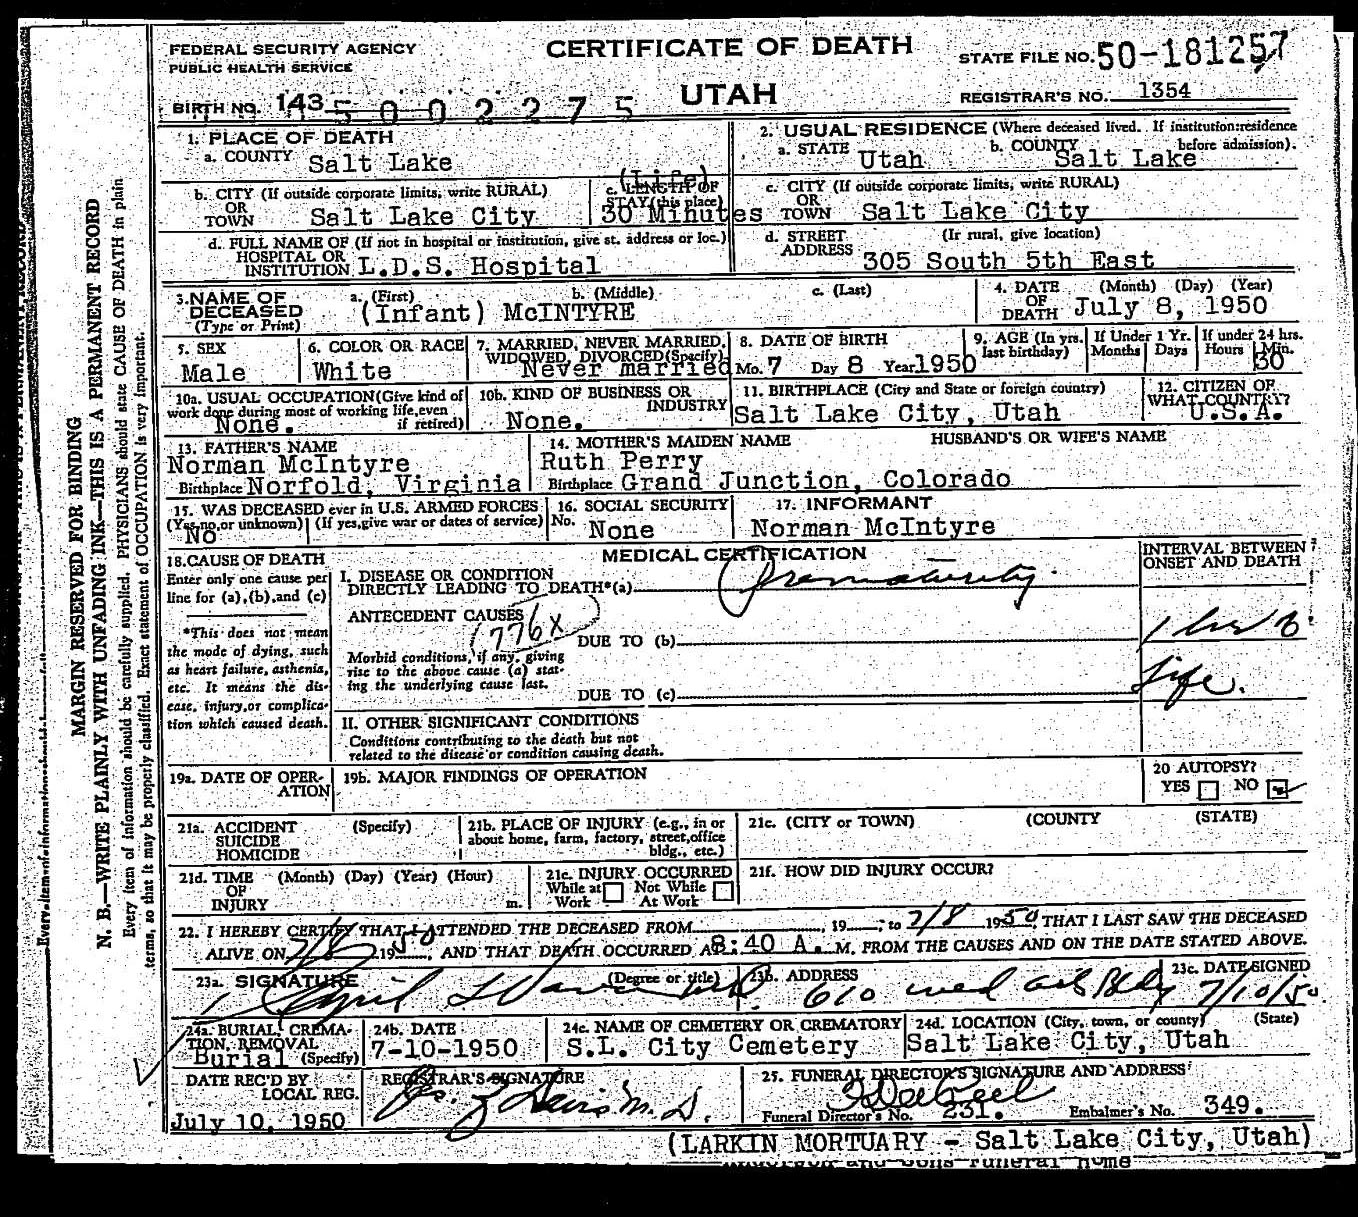 FEDERAL SECURITY AGENCY
PUBLIC HEALTH SERVICE
CERTIFICATE OF DEATH
UTAH
STATE FILE NO. 50-181257
REGISTRAR'S NO. 1354
BIRTH NO. 143 5 0 0 2 2 7 5
1. PLACE OF DEATH
a. COUNTY Salt Lake
2. USUAL RESIDENCE (Where deceased lived. If institution: residence before admission).
a. STATE Utah
b. COUNTY Salt Lake
b. CITY (If outside corporate limits, write RURAL)
OR
TOWN Salt Lake City
(Life)
c. LENGTH OF STAY (this place)
30 Minutes
c. CITY (If outside corporate limits, write RURAL)
OR
TOWN Salt Lake City
d. FULL NAME OF (If not in hospital or institution, give st. address or loc.)
HOSPITAL OR
INSTITUTION L.D.S. Hospital
d. STREET ADDRESS (If rural, give location)
305 South 5th East
3. NAME OF DECEASED
(Type or Print)
a. (First) b. (Middle) c. (Last)
(Infant) McINTYRE
4. DATE OF DEATH (Month) (Day) (Year)
July 8, 1950
5. SEX
Male
6. COLOR OR RACE
White
7. MARRIED, NEVER MARRIED, WIDOWED, DIVORCED (Specify)
Never married
8. DATE OF BIRTH
Mo. 7 Day 8 Year 1950
9. AGE (In yrs. last birthday)
If Under 1 Yr.
Months Days
If under 24 hrs.
Hours Min.
30
10a. USUAL OCCUPATION (Give kind of work done during most of working life, even if retired)
None.
10b. KIND OF BUSINESS OR INDUSTRY
None.
11. BIRTHPLACE (City and State or foreign country)
Salt Lake City, Utah
12. CITIZEN OF WHAT COUNTRY?
U.S.A.
13. FATHER'S NAME
Norman McIntyre
Birthplace Norfold, Virginia
14. MOTHER'S MAIDEN NAME
Ruth Perry
Birthplace Grand Junction, Colorado
HUSBAND'S OR WIFE'S NAME
15. WAS DECEASED ever in U.S. ARMED FORCES
(Yes, no, or unknown) (If yes, give war or dates of service)
No
16. SOCIAL SECURITY
No. None
17. INFORMANT
Norman McIntyre
18. CAUSE OF DEATH
Enter only one cause per line for (a), (b), and (c)
*This does not mean the mode of dying, such as heart failure, asthenia, etc. It means the disease, injury, or complication which caused death.
MEDICAL CERTIFICATION
INTERVAL BETWEEN ONSET AND DEATH
I. DISEASE OR CONDITION
DIRECTLY LEADING TO DEATH* (a) Prematurity
ANTECEDENT CAUSES
(776X)
DUE TO (b)
Morbid conditions, if any, giving rise to the above cause (a) stating the underlying cause last.
DUE TO (c)
life.
II. OTHER SIGNIFICANT CONDITIONS
Conditions contributing to the death but not related to the disease or condition causing death.
19a. DATE OF OPERATION
19b. MAJOR FINDINGS OF OPERATION
20 AUTOPSY?
YES NO
21a. ACCIDENT SUICIDE HOMICIDE (Specify)
21b. PLACE OF INJURY (e.g., in or about home, farm, factory, street, office bldg., etc.)
21c. (CITY or TOWN) (COUNTY (STATE)
21d. TIME OF INJURY (Month) (Day) (Year) (Hour) m.
21e. INJURY OCCURRED
While at Work Not While At Work
21f. HOW DID INJURY OCCUR?
22. I HEREBY CERTIFY THAT I ATTENDED THE DECEASED FROM , 19 , to 7/8 1950, THAT I LAST SAW THE DECEASED
ALIVE ON 7/8 1950, AND THAT DEATH OCCURRED AT 8:40 A. M. FROM THE CAUSES AND ON THE DATE STATED ABOVE.
23a. SIGNATURE (Degree or title)
23b. ADDRESS
610 Med Arts Bldg
23c. DATE SIGNED
7/10/50
24a. BURIAL, CREMATION, REMOVAL (Specify)
Burial
24b. DATE
7-10-1950
24c. NAME OF CEMETERY OR CREMATORY
S.L. City Cemetery
24d. LOCATION (City, town, or county) (State)
Salt Lake City, Utah
DATE REC'D BY LOCAL REG.
July 10, 1950
REGISTRAR'S SIGNATURE
M.D.
25. FUNERAL DIRECTOR'S SIGNATURE AND ADDRESS
Funeral Director's No. 231. Embalmer's No. 349.
(LARKIN MORTUARY - Salt Lake City, Utah)
MARGIN RESERVED FOR BINDING
N. B.—WRITE PLAINLY WITH UNFADING INK—THIS IS A PERMANENT RECORD
Every item of information should be carefully supplied. PHYSICIANS should state CAUSE OF DEATH in plain
terms, so that it may be properly classified. Exact statement of OCCUPATION is very important.